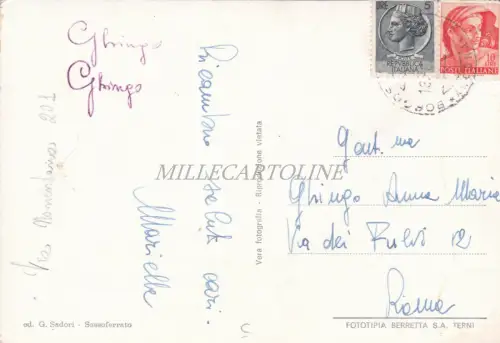 Ghingo
Ghingo
Via Nomentana 201
Ricambio
saluti cari.
Mariella
ed. G. Sadori - Sassoferrato
Vera fotografia - Riproduzione vietata
MILLECARTOLINE
REPVBBLICA
ITALIANA
POSTE ITALIANE
Gent.ma
Ghingo Anna Maria
Via dei Fulvi 12
Roma
FOTOTIPIA BERRETTA S.A. TERNI